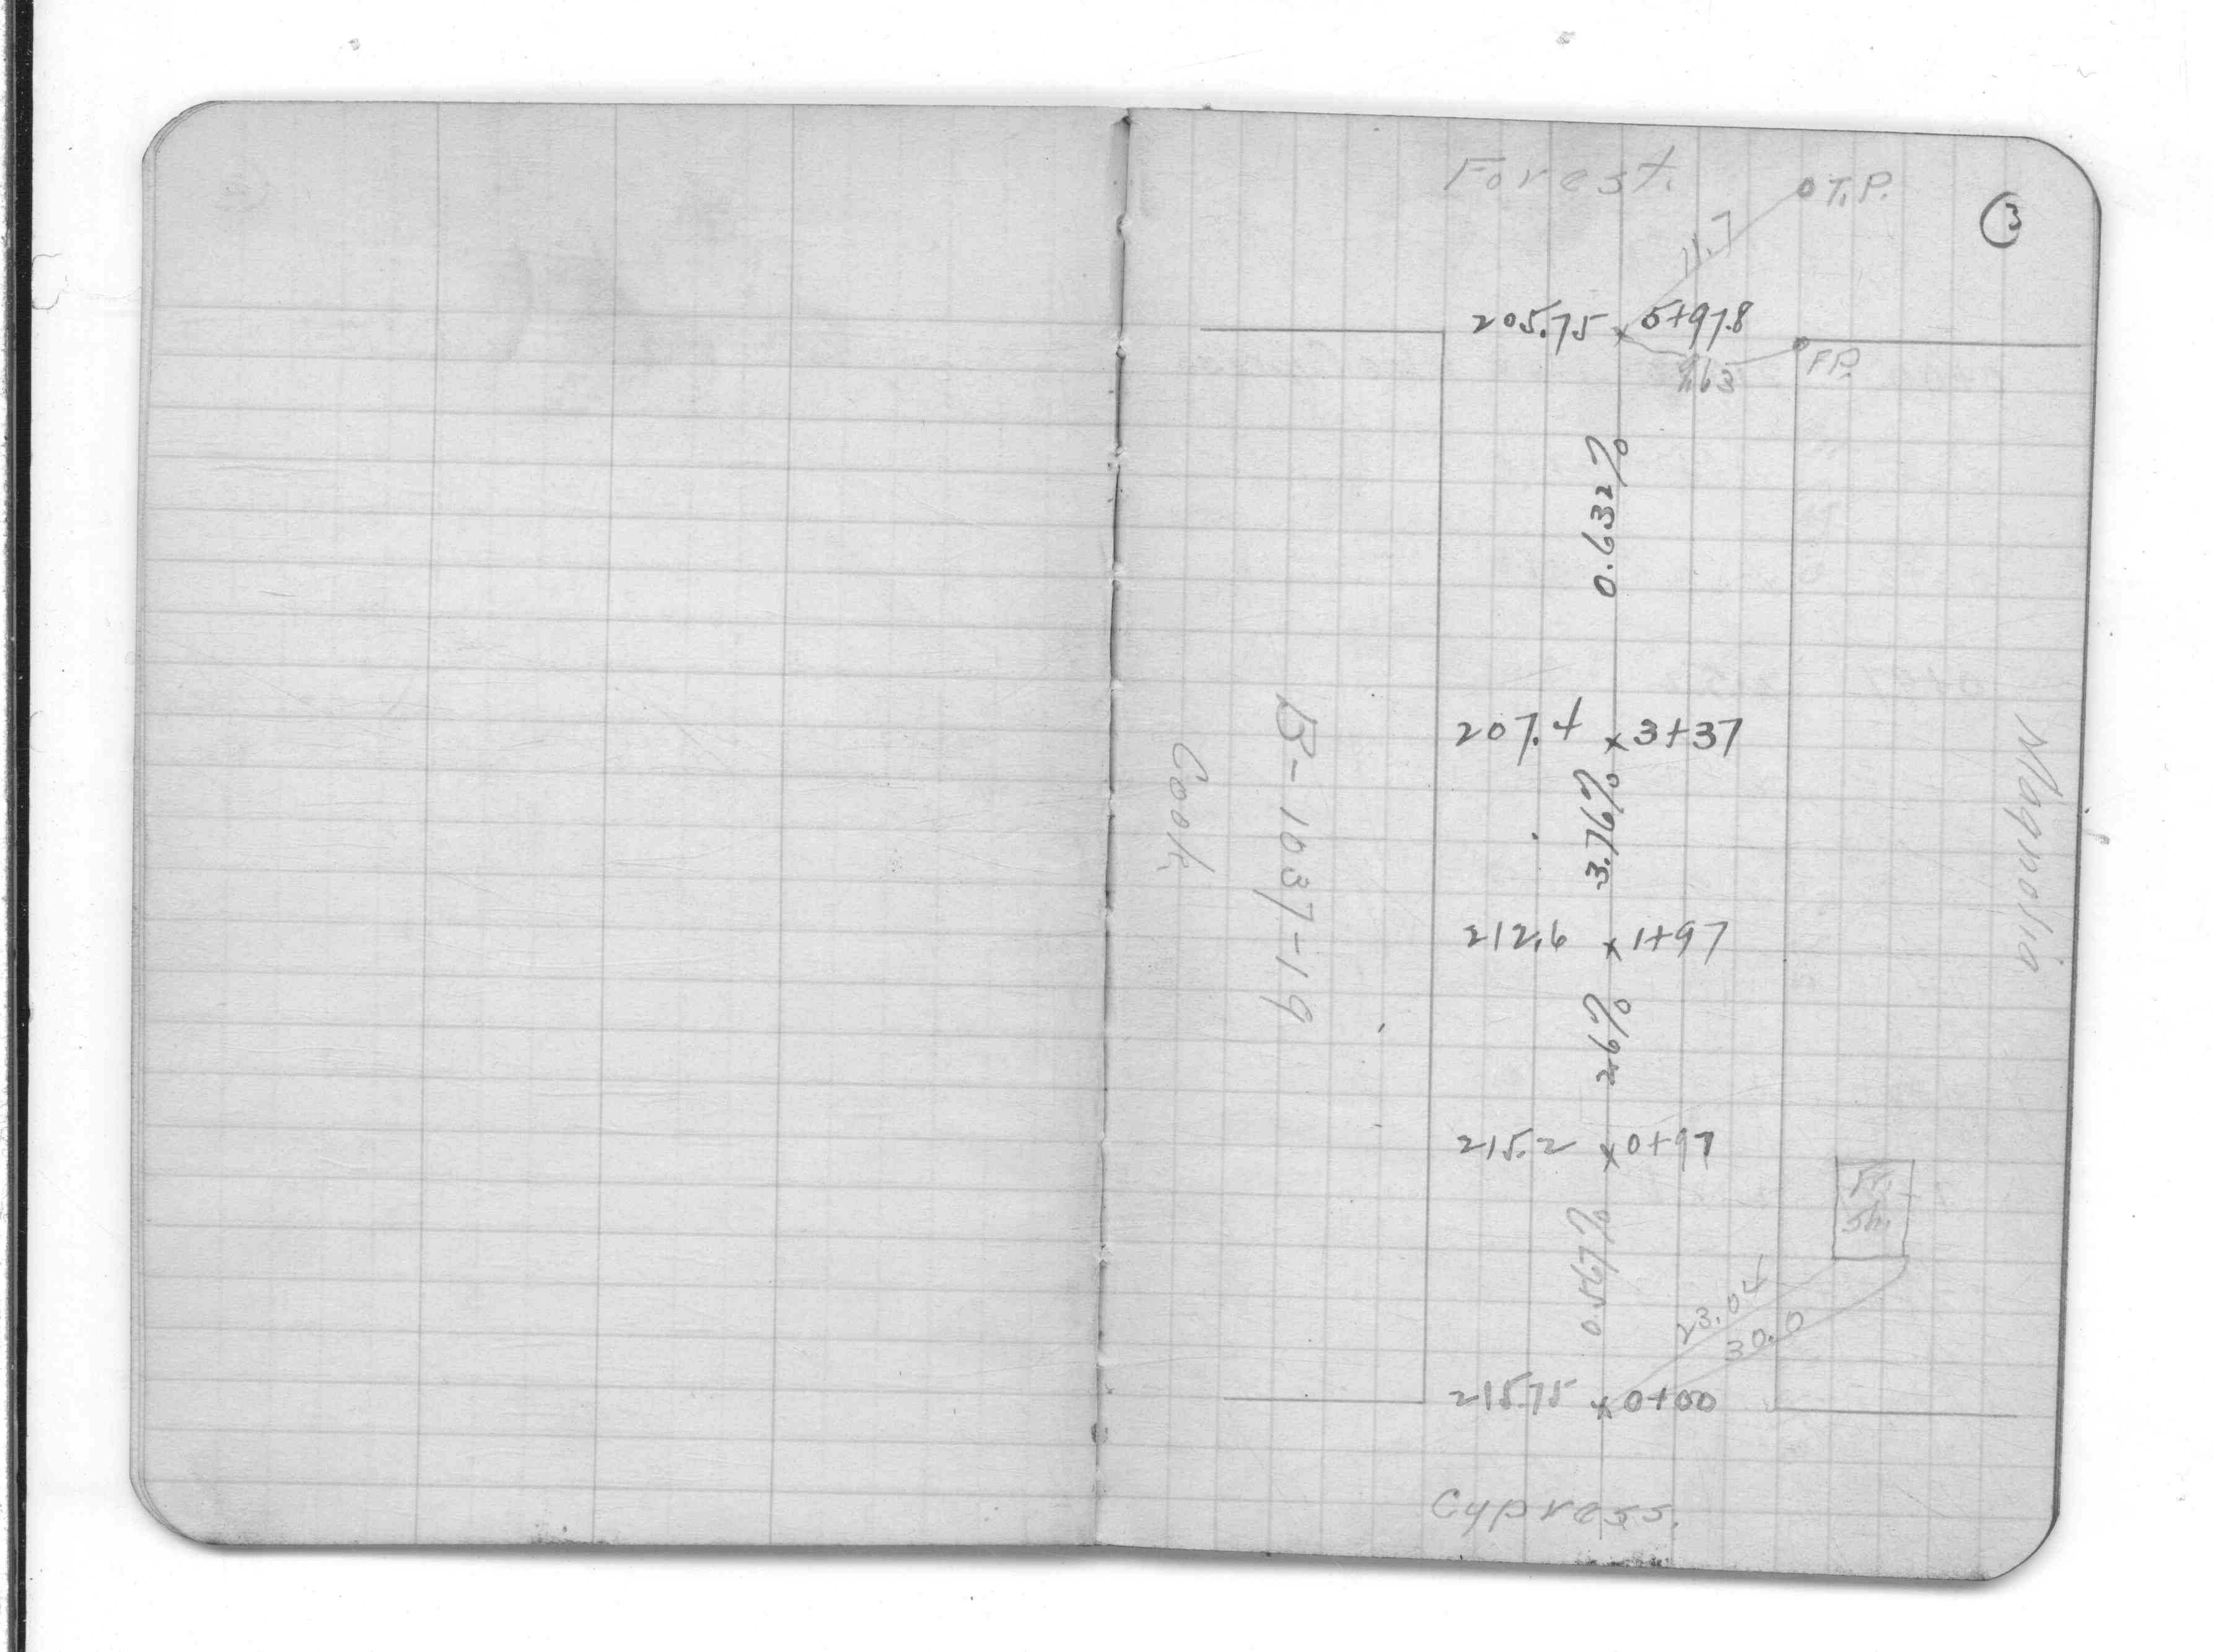 Forest.
T.P.
3
11.7
205.75 x 5+97.8
P.P.
0.632%
207.4 x 3+37
3.76%
Magnolia
B-1037-19
Cook
212.6 x 1+97
2.6%
215.2 x 0+97
Fr.
Sh.
0.567%
23.04
30.0
215.75 x 0+00
Cypress.